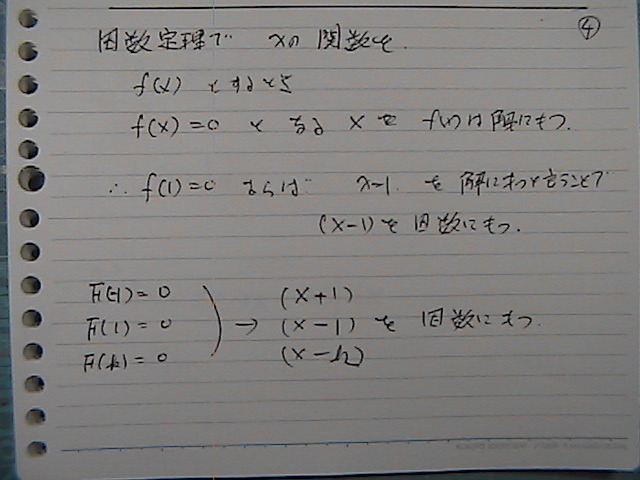 ④
因数定理で xの 関数を
f(x) とするとき
f(x)=0 と なる x を f(x)は解にもつ.
∴ f(1)=0 ならば x=1 を 解にもつと言うことで
(x-1)を因数にもつ.
F(-1)=0 (x+1)
F(1)=0 → (x-1) を 因数にもつ.
F(k)=0 (x-k)